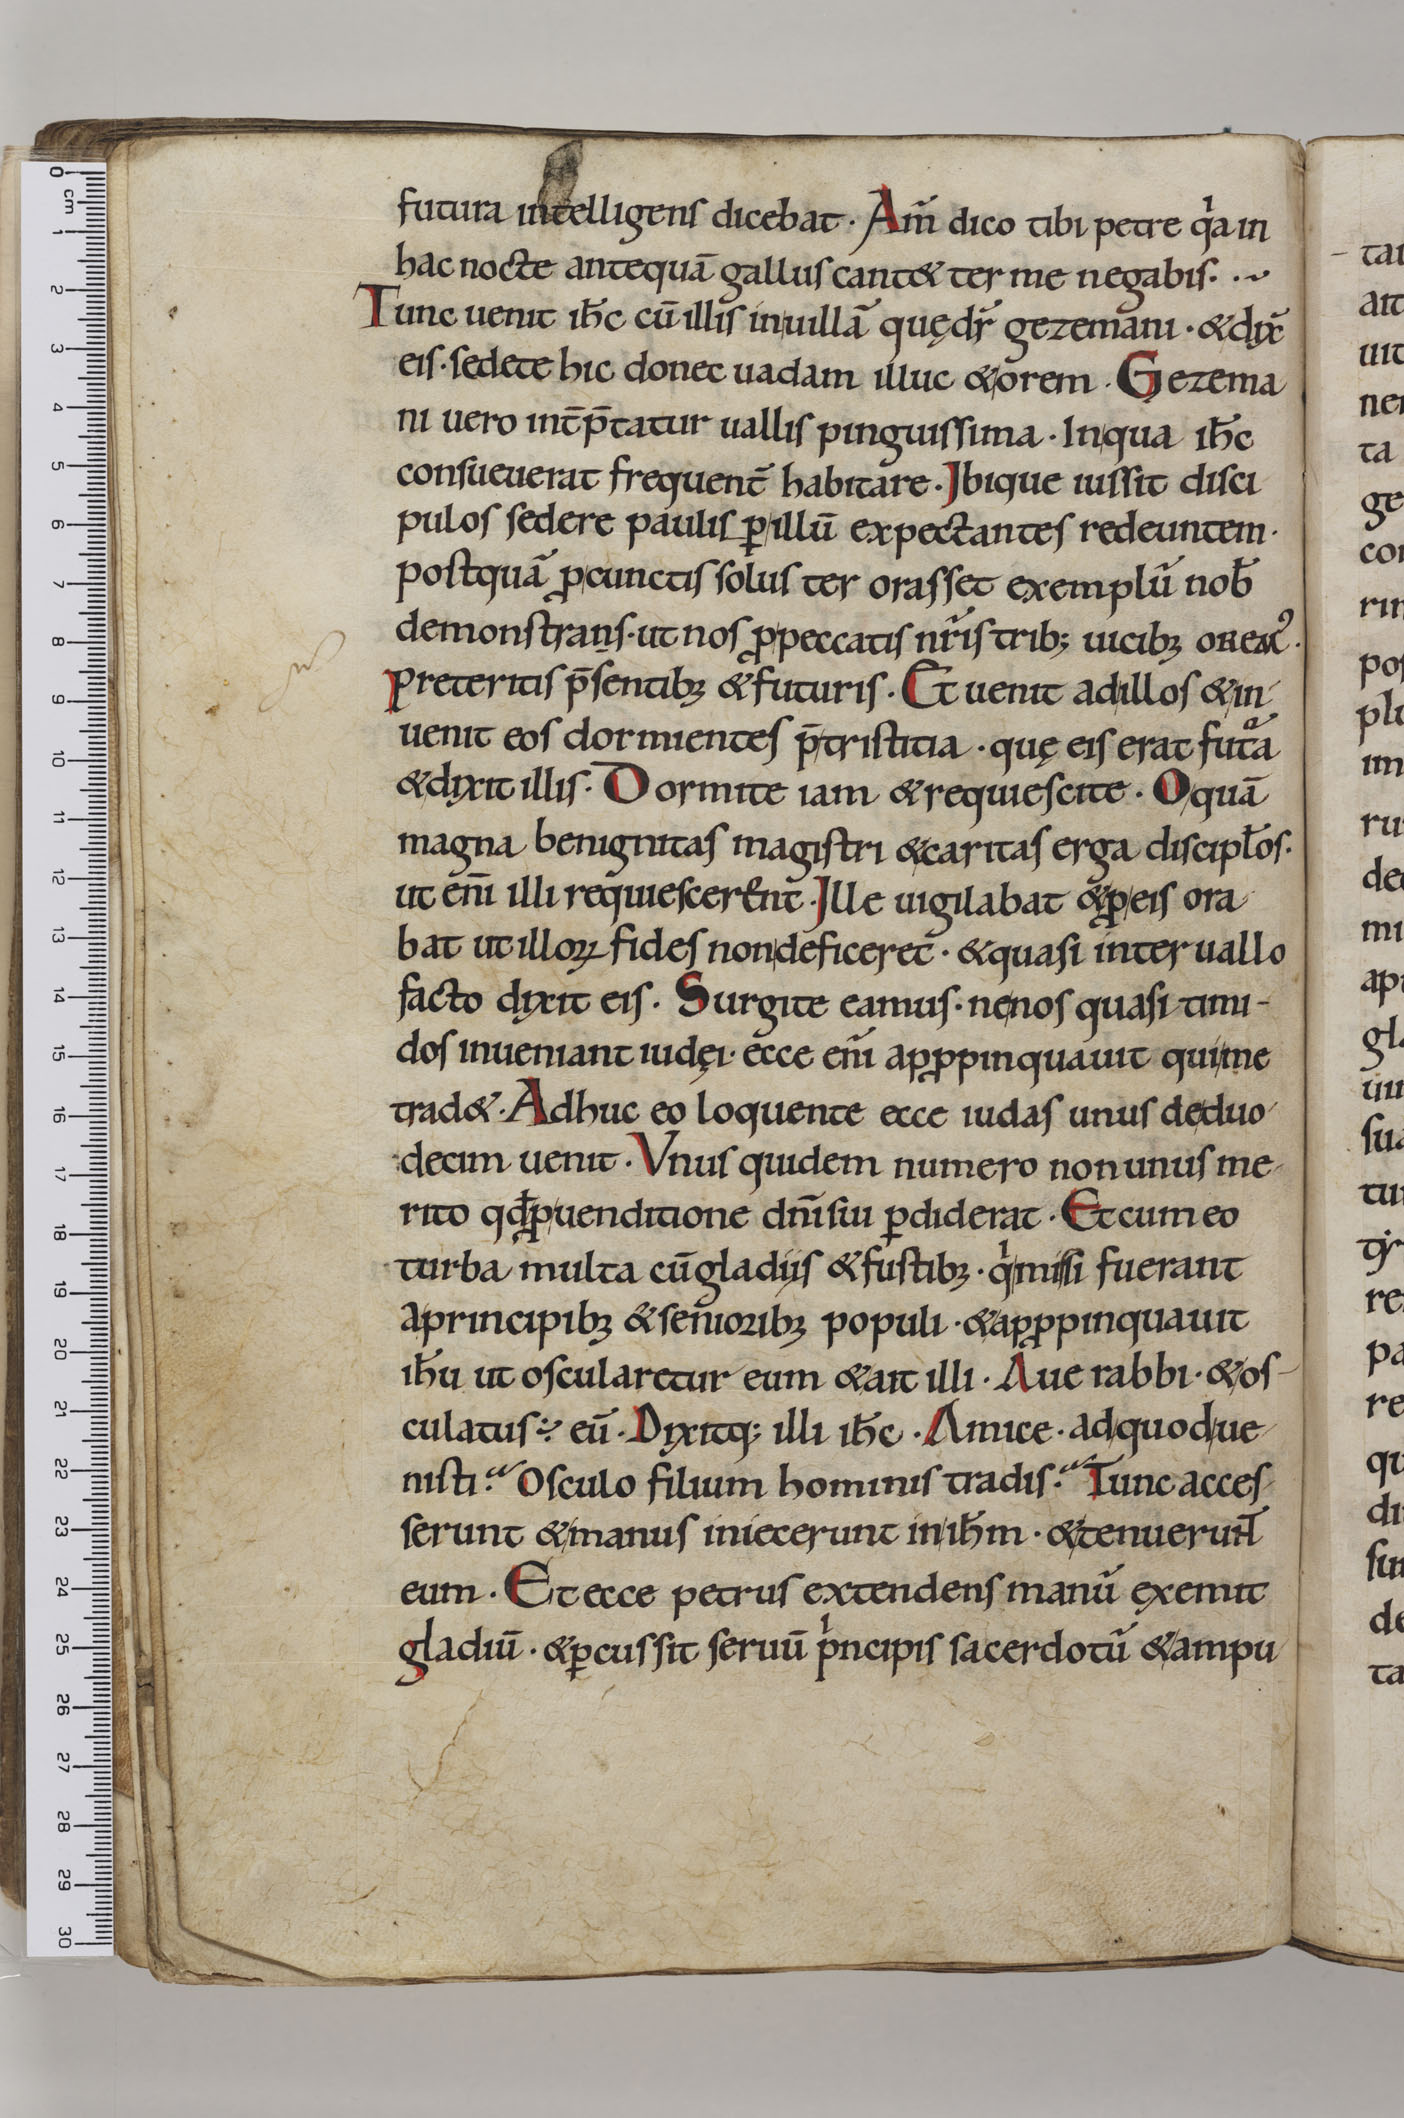 futura intelligens dicebat · Am̄ dico tibi petre qͥa in
hac nocte antequā gallus cant& ter me negabis · ~
Tunc uenit ih̄c cū illis in uillā quę dr̄ gezemani · & dix̄
eis · sedete hic donec uadam illuc & orem · Gezema
ni uero int̄p̄tatur uallis pinguissima · In qua ih̄c
consueuerat frequent̄ habitare · Ibique iussit disci
pulos sedere paulisꝑ illū expectantes redeuntem ·
postquā ꝓ cunctis solus ter orasset exemplū nob̄
demonstrans · ut nos ꝓ peccatis nr̄is trib; uicibꝫ oremꝰ ·
Preteritis p̄sentibꝫ & futuris · Et uenit ad illos & in
uenit eos dormientes p̄ tristitia · quę eis erat futᷓa
& dixit illis · Dormite iam & requiescite · O quā
magna benignitas magistri & caritas erga discipl̄os ·
ut eni̅ illi requiescerent · Ille uigilabat & ꝓ eis ora
bat ut illoꝝ fides non deficeret · & quasi interuallo
facto dixit eis · Surgite eamus · ne nos quasi timi-
dos inueniant iudęi · ecce eni̅ apꝓpinquauit qui me
trad& · Adhuc eo loquente ecce iudas unus de duo
decim uenit · Vnus quidem numero non unus me
rito qd̄ ꝓ uenditione dn̄i sui ꝑdiderat · Et cum eo
turba multa cū gladiis & fustibꝫ · qͥ missi fuerant
a principibꝫ & senioribꝫ populi · & apꝓpinquauit
ih̄u ut oscularetur eum & ait illi · Aue rabbi · & os-
culatus ÷ eū · Dixitq; illi ih̄c · Amice · ad quod ue
nisti? Osculo filium hominis tradis? Tunc acces
serunt & manus iniecerunt in ih̄m · & tenuerunt
eum · Et ecce petrus extendens manū exemit
gladiū · & ꝑcussit seruū pͥncipis sacerdotū & ampu